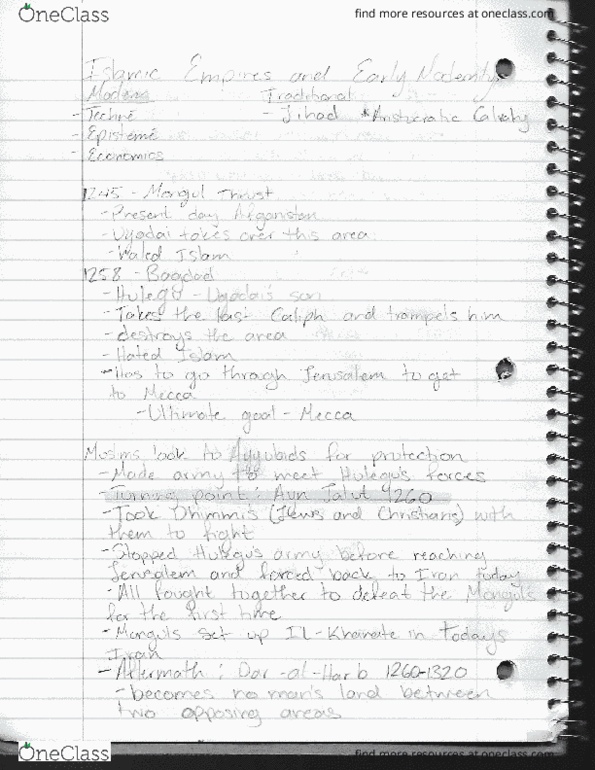 OneClass
find more resources at oneclass.com
Islamic Empires and Early Modernity
Moderns Traditional
- Techné - Jihad *Aristocratic Calvary
- Epistemé
- Economics
1245 - Mongul Thrust
- Present day Afganistan
- Ugodai takes over this area
- Hated Islam
1258 - Bagdad
- Hulegu - Ugodai's son
- Takes the last Caliph and trompels him
- destroys the area
- Hated Islam
- Has to go through Jerusalem to get
to Mecca
- Ultimate goal - Mecca
Muslms look to Ayyubids for protection
- Made army to meet Hulegu's forces
- Turning point: Ayn Jalut 1260
- Took Dhimmis (Jews and Christians) with
them to fight
- Stopped Hulegu's army before reaching
Jerusalem and forced back to Iran today
- All fought together to defeat the Monguls
for the first time
- Monguls set up Il-Khanate in todays
Iran
- Aftermath: Dar-al-Harb 1260-1320
- becomes no man's land between
two opposing areas
OneClass
find more resources at oneclass.com